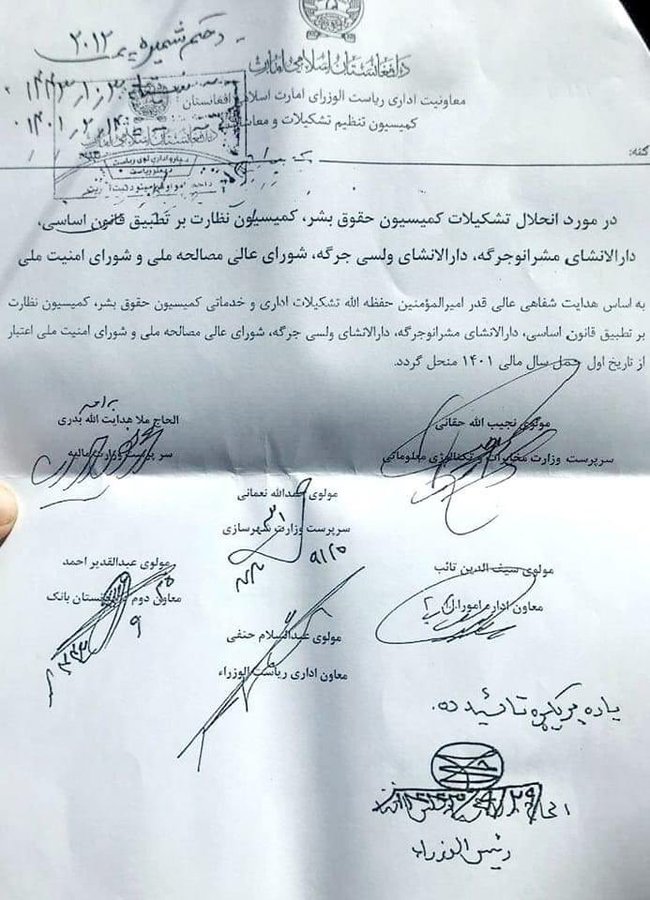 د حکم شمیره ۲۰۱۲
دافغانستان اسلامی امارت
معاونیت اداری ریاست الوزرای امارت اسلامی افغانستان
کمیسیون تنظیم تشکیلات و معاشات
ګڼه:
دافغانستان اسلامی امارت
در مورد انحلال تشکیلات کمیسیون حقوق بشر، کمیسیون نظارت بر تطبیق قانون اساسی،
دارالانشای مشرانوجرگه، دارالانشای ولسی جرگه، شورای عالی مصالحه ملی و شورای امنیت ملی
به اساس هدایت شفاهی عالی قدر امیرالمؤمنین حفظه الله تشکیلات اداری و خدماتی کمیسیون حقوق بشر، کمیسیون نظارت
بر تطبیق قانون اساسی، دارالانشای مشرانوجرگه، دارالانشای ولسی جرگه، شورای عالی مصالحه ملی و شورای امنیت ملی اعتبار
از تاریخ اول حمل سال مالی ۱۴۰۱ منحل گردد.
مولوی نجیب الله حقانی
سرپرست وزارت مخابرات و تکنالوژی معلوماتی
الحاج ملا هدایت الله بدری
سرپرست وزارت مالیه
مولوی حمدالله نعمانی
سرپرست وزارت شهرسازی
مولوی سیف الدین تائب
معاون اداره امور ا.ا.ا
مولوی عبدالقدیر احمد
معاون دوم دافغانستان بانک
مولوی عبدالسلام حنفی
معاون اداری ریاست الوزراء
تائید ده.
رئیس الوزراء